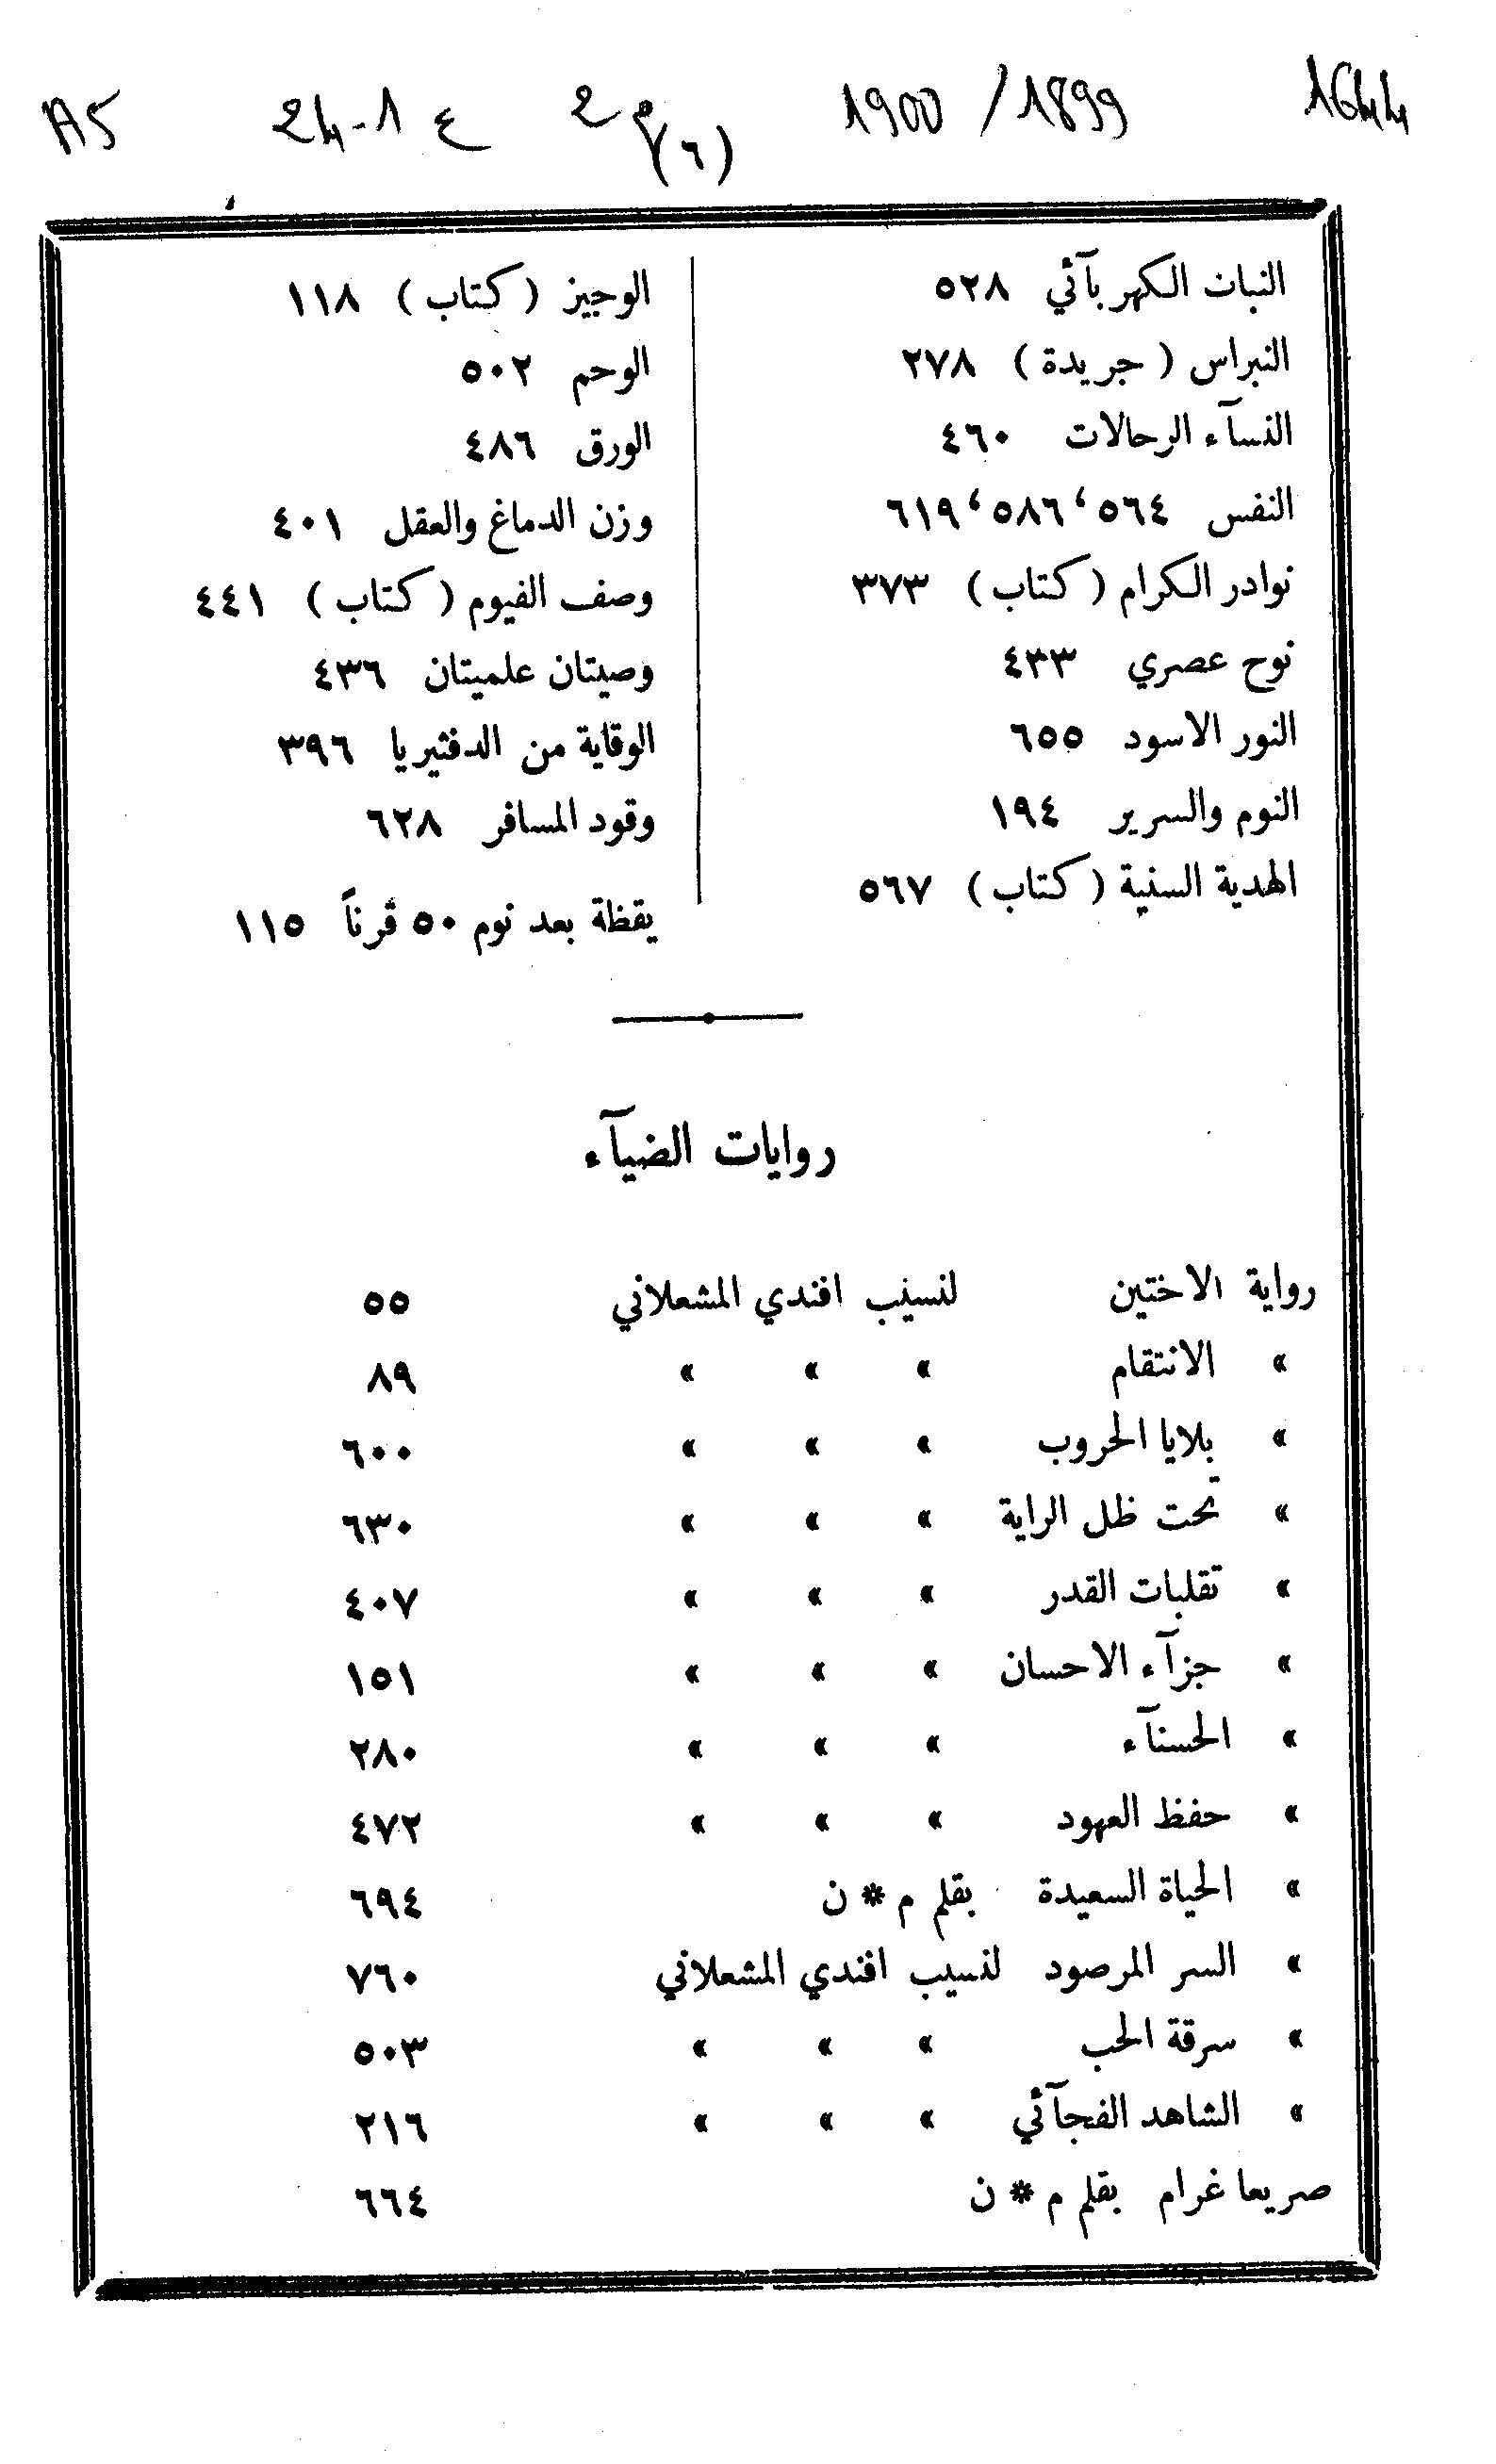 1644 1899 / 1900 م 2 ع 1-24 A5
(٦)
النبات الكهربآئي ٥٢٨
النبراس ( جريدة ) ٢٧٨
النسآء الرحالات ٤٦٠
النفس ٥٦٤، ٥٨٦، ٦١٩
نوادر الكرام ( كتاب ) ٣٧٣
نوح عصري ٤٣٣
النور الاسود ٦٥٥
النوم والسرير ١٩٤
الهدية السنية ( كتاب ) ٥٦٧
الوجيز ( كتاب ) ١١٨
الوحم ٥٠٢
الورق ٤٨٦
وزن الدماغ والعقل ٤٠١
وصف الفيوم ( كتاب ) ٤٤١
وصيتان علميتان ٤٣٦
الوقاية من الدفثيريا ٣٩٦
وقود المسافر ٦٢٨
يقظة بعد نوم ٥٠ قرناً ١١٥
روايات الضيآء
رواية الاختين لنسيب افندي المشعلاني ٥٥
» الانتقام » » » ٨٩
» بلايا الحروب » » » ٦٠٠
» تحت ظل الراية » » » ٦٣٠
» تقلبات القدر » » » ٤٠٧
» جزآء الاحسان » » » ١٥١
» الحسنآء » » » ٢٨٠
» حفظ العهود » » » ٤٧٢
» الحياة السعيدة بقلم م * ن ٦٩٤
» السر المرصود لنسيب افندي المشعلاني ٧٦٠
» سرقة الحب » » » ٥٠٣
» الشاهد الفجآئي » » » ٢١٦
صريعا غرام بقلم م * ن ٦٦٤